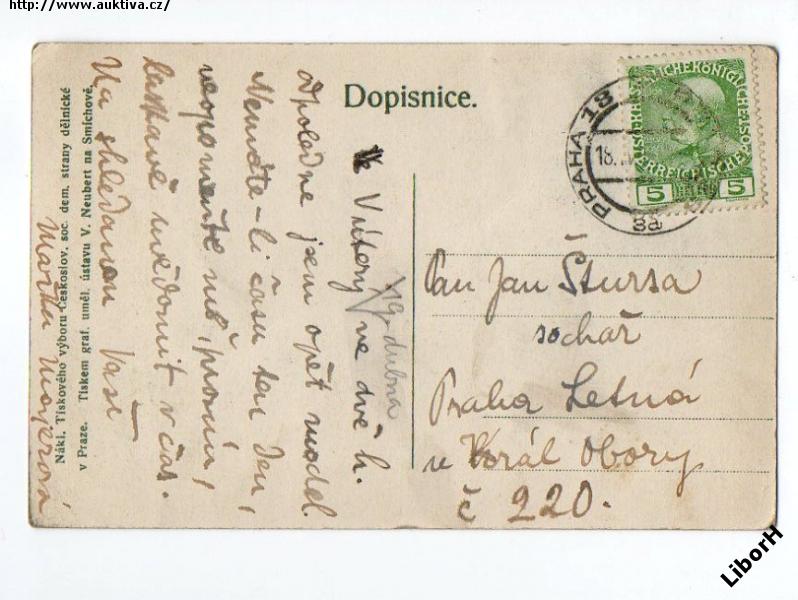 http://www.auktiva.cz/
Dopisnice.
PRAHA 18
18.
8a
5 5
V úterý 19. dubna ve dvě h.
odpoledne jsem opět model.
Nemáte-li času ten den,
neopomeňte mě, prosím,
laskavě uvědomit v čas.
Na shledanou Vaše
Marie Majerová
Pan Jan Štursa
sochař
Praha Letná
u Král Obory
č 220.
Nákl. Tiskového výboru Českoslov. soc. dem. strany dělnické
v Praze. Tiskem graf. uměl. ústavu V. Neubert na Smíchově.
LiborH